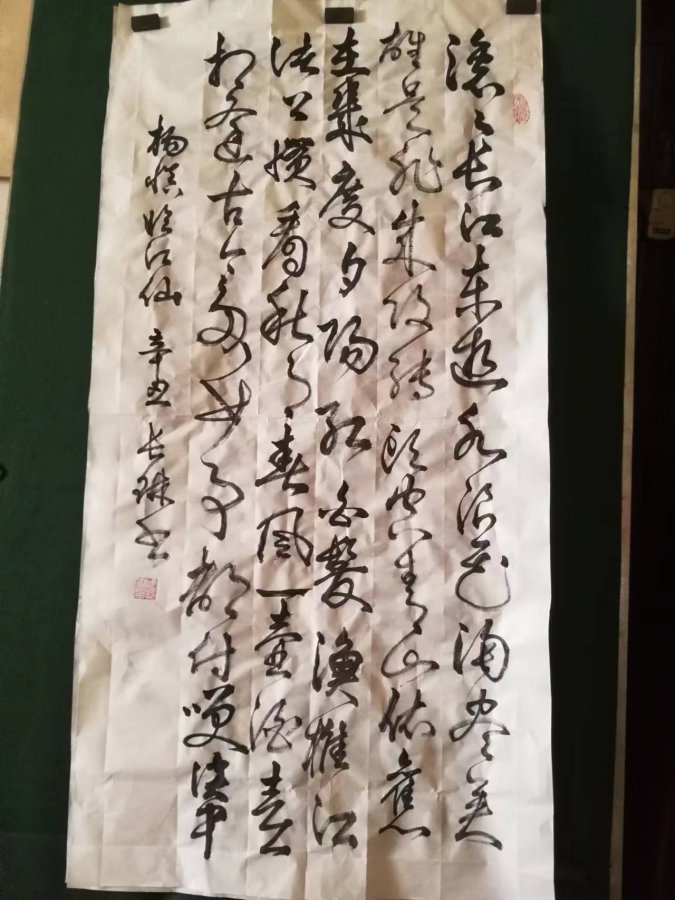 滚滚长江东逝水浪花淘尽英
雄是非成败转头空青山依旧
在几度夕阳红白发渔樵江
渚上惯看秋月春风一壶酒喜
相逢古今多少事都付笑谈中
杨慎临江仙 辛丑 长珠书